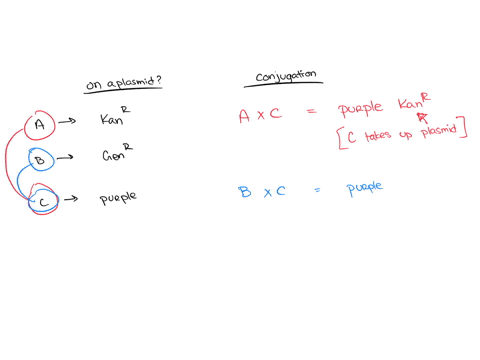 on a plasmid?
Conjugation
A → Kan^R
A x C = purple Kan^R
[C takes up plasmid]
B → Gen^R
C → purple
B x C = purple